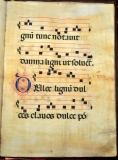 gnū tunc notauit
damna ligni ut solueret
Dulce lignū dul
ces clauos dulce pō